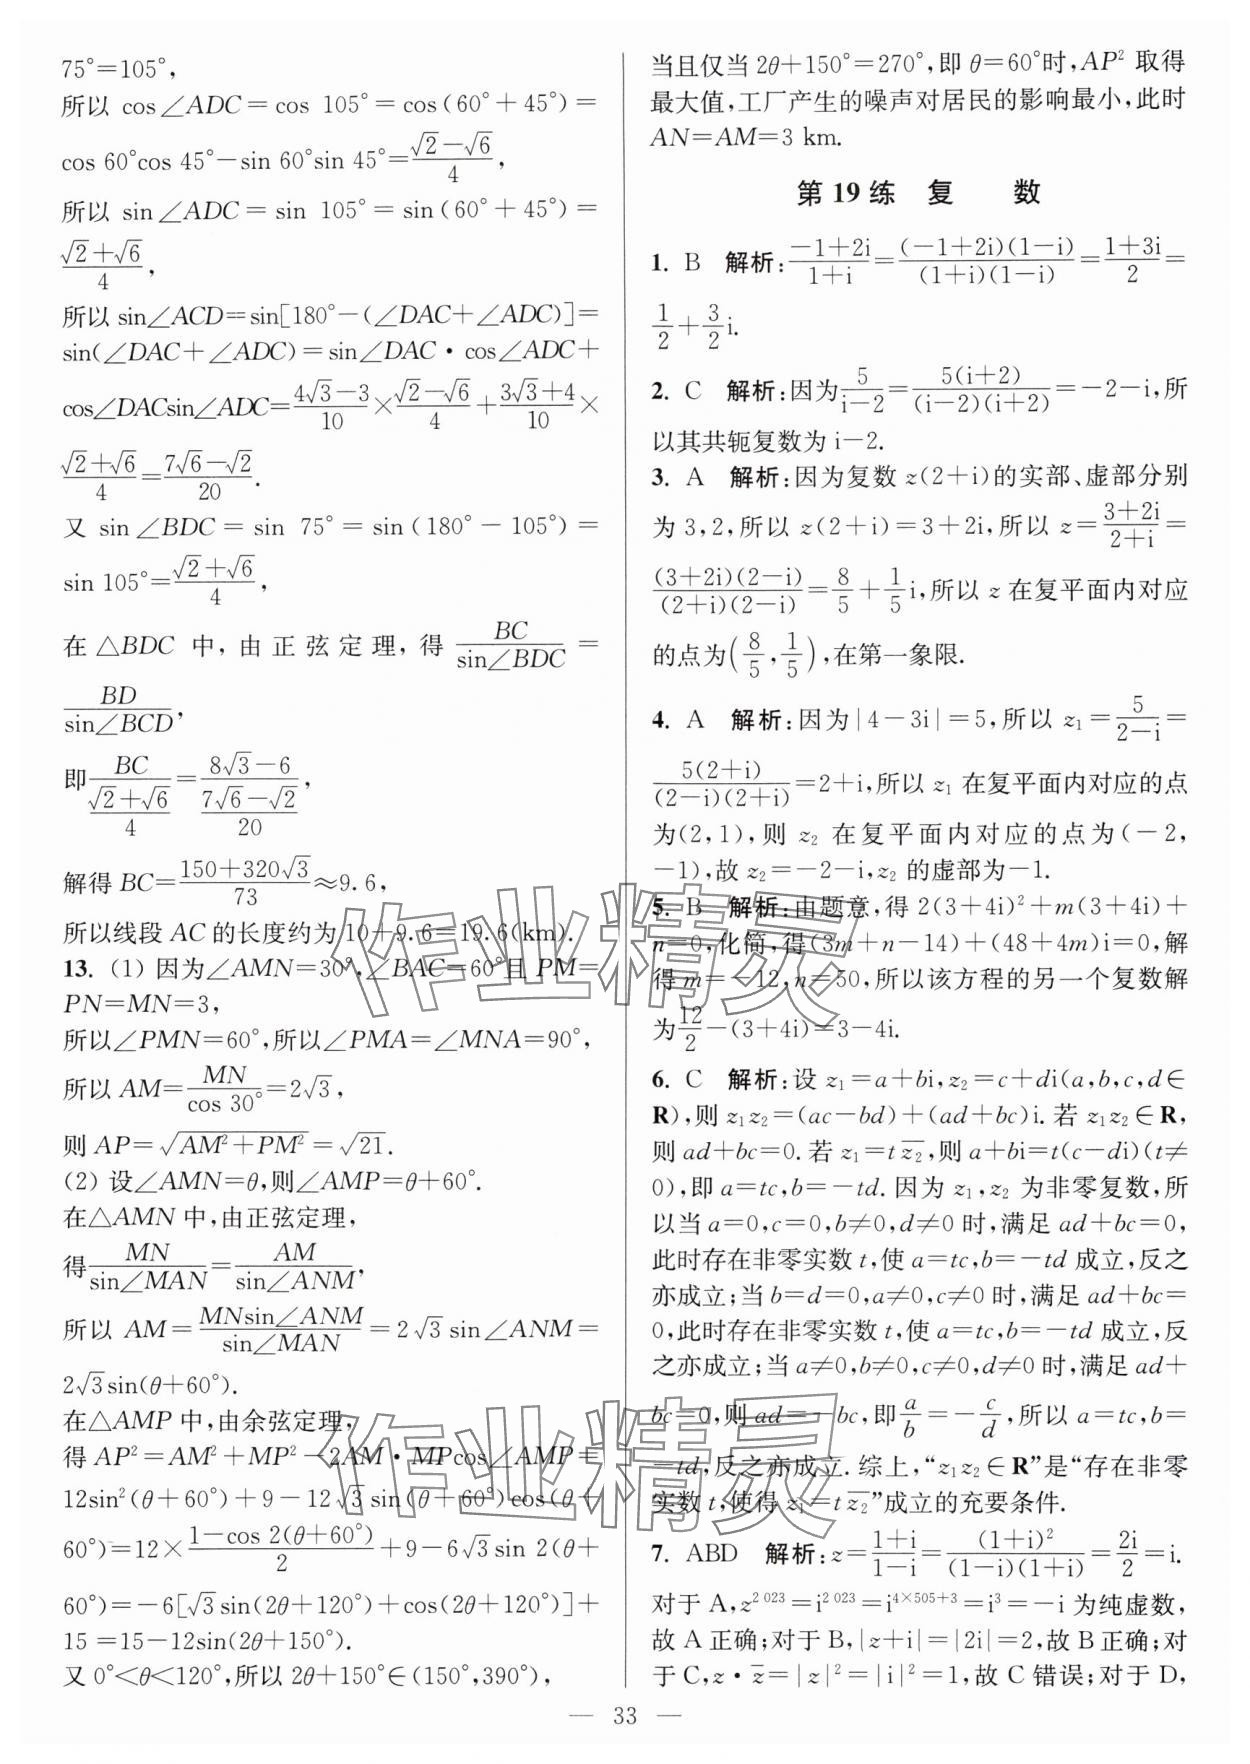 75°=105°,
所以 cos∠ADC=cos 105°=cos(60°+45°)=
cos 60°cos 45°-sin 60°sin 45°=(√2-√6)/4,
所以 sin∠ADC=sin 105°=sin(60°+45°)=
(√2+√6)/4,
所以 sin∠ACD=sin[180°-(∠DAC+∠ADC)]=
sin(∠DAC+∠ADC)=sin∠DAC·cos∠ADC+
cos∠DACsin∠ADC=(4√3-3)/10×(√2-√6)/4+(3√3+4)/10×
(√2+√6)/4=(7√6-√2)/20.
又 sin∠BDC=sin 75°=sin(180°-105°)=
sin 105°=(√2+√6)/4,
在△BDC 中,由正弦定理,得 BC/sin∠BDC=
BD/sin∠BCD,
即 BC/((√2+√6)/4)=(8√3-6)/((7√6-√2)/20),
解得 BC=(150+320√3)/73≈9.6,
所以线段 AC 的长度约为 10+9.6=19.6(km).
13. (1) 因为∠AMN=30°,∠BAC=60°且 PM=
PN=MN=3,
所以∠PMN=60°,所以∠PMA=∠MNA=90°,
所以 AM=MN/cos 30°=2√3,
则 AP=√(AM²+PM²)=√21.
(2) 设∠AMN=θ,则∠AMP=θ+60°.
在△AMN 中,由正弦定理,
得 MN/sin∠MAN=AM/sin∠ANM,
所以 AM=MNsin∠ANM/sin∠MAN=2√3 sin∠ANM=
2√3sin(θ+60°).
在△AMP 中,由余弦定理,
得 AP²=AM²+MP²-2AM·MPcos∠AMP=
12sin²(θ+60°)+9-12√3 sin(θ+60°)cos(θ+
60°)=12×(1-cos 2(θ+60°))/2+9-6√3sin 2(θ+
60°)=-6[√3sin(2θ+120°)+cos(2θ+120°)]+
15=15-12sin(2θ+150°).
又 0°<θ<120°,所以 2θ+150°∈(150°,390°),
当且仅当 2θ+150°=270°,即 θ=60°时,AP² 取得
最大值,工厂产生的噪声对居民的影响最小,此时
AN=AM=3 km.
第 19 练 复 数
1. B 解析:(-1+2i)/(1+i)=((-1+2i)(1-i))/((1+i)(1-i))=(1+3i)/2=
1/2+3/2i.
2. C 解析:因为5/(i-2)=5(i+2)/((i-2)(i+2))=-2-i,所
以其共轭复数为 i-2.
3. A 解析:因为复数 z(2+i)的实部、虚部分别
为 3,2,所以 z(2+i)=3+2i,所以 z=(3+2i)/(2+i)=
((3+2i)(2-i))/((2+i)(2-i))=8/5+1/5i,所以 z 在复平面内对应
的点为(8/5,1/5),在第一象限.
4. A 解析:因为|4-3i|=5,所以 z₁=5/(2-i)=
5(2+i)/((2-i)(2+i))=2+i,所以 z₁ 在复平面内对应的点
为(2,1),则 z₂ 在复平面内对应的点为(-2,
-1),故 z₂=-2-i,z₂ 的虚部为-1.
5. B 解析:由题意,得 2(3+4i)²+m(3+4i)+
n=0,化简,得(3m+n-14)+(48+4m)i=0,解
得 m=-12,n=50,所以该方程的另一个复数解
为12/2-(3+4i)=3-4i.
6. C 解析:设 z₁=a+bi,z₂=c+di(a,b,c,d∈
R),则 z₁z₂=(ac-bd)+(ad+bc)i.若 z₁z₂∈R,
则 ad+bc=0.若 z₁=tz̅₂,则 a+bi=t(c-di)(t≠
0),即 a=tc,b=-td.因为 z₁,z₂ 为非零复数,所
以当 a=0,c=0,b≠0,d≠0 时,满足 ad+bc=0,
此时存在非零实数 t,使 a=tc,b=-td 成立,反之
亦成立;当 b=d=0,a≠0,c≠0 时,满足 ad+bc=
0,此时存在非零实数 t,使 a=tc,b=-td 成立,反
之亦成立;当 a≠0,b≠0,c≠0,d≠0 时,满足 ad+
bc=0,则 ad=-bc,即a/b=-c/d,所以 a=tc,b=
-td,反之亦成立.综上,“z₁z₂∈R”是“存在非零
实数 t,使得 z₁=tz̅₂”成立的充要条件.
7. ABD 解析:z=(1+i)/(1-i)=(1+i)²/((1-i)(1+i))=2i/2=i.
对于 A,z²⁰²³=i²⁰²³=i⁴ˣ⁵⁰⁵⁺³=i³=-i 为纯虚数,
故 A 正确;对于 B,|z+i|=|2i|=2,故 B 正确;对
于 C,z·z̅=|z|²=|i|²=1,故 C 错误;对于 D,
— 33 —
作业精灵
作业精灵